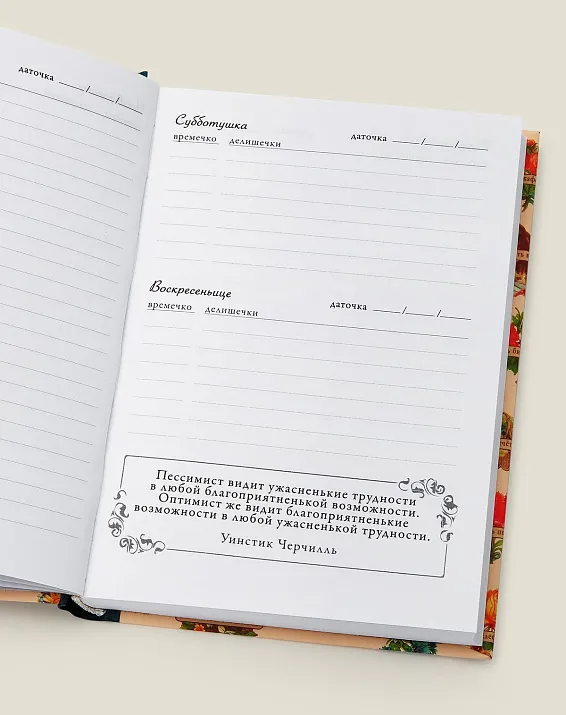 даточка ____/____/____
Субботушка
даточка ____/____/____
времечко делишечки
Воскресеньице
даточка ____/____/____
времечко делишечки
Пессимист видит ужасненькие трудности
в любой благоприятненькой возможности.
Оптимист же видит благоприятненькие
возможности в любой ужасненькой трудности.
Уинстик Черчилль